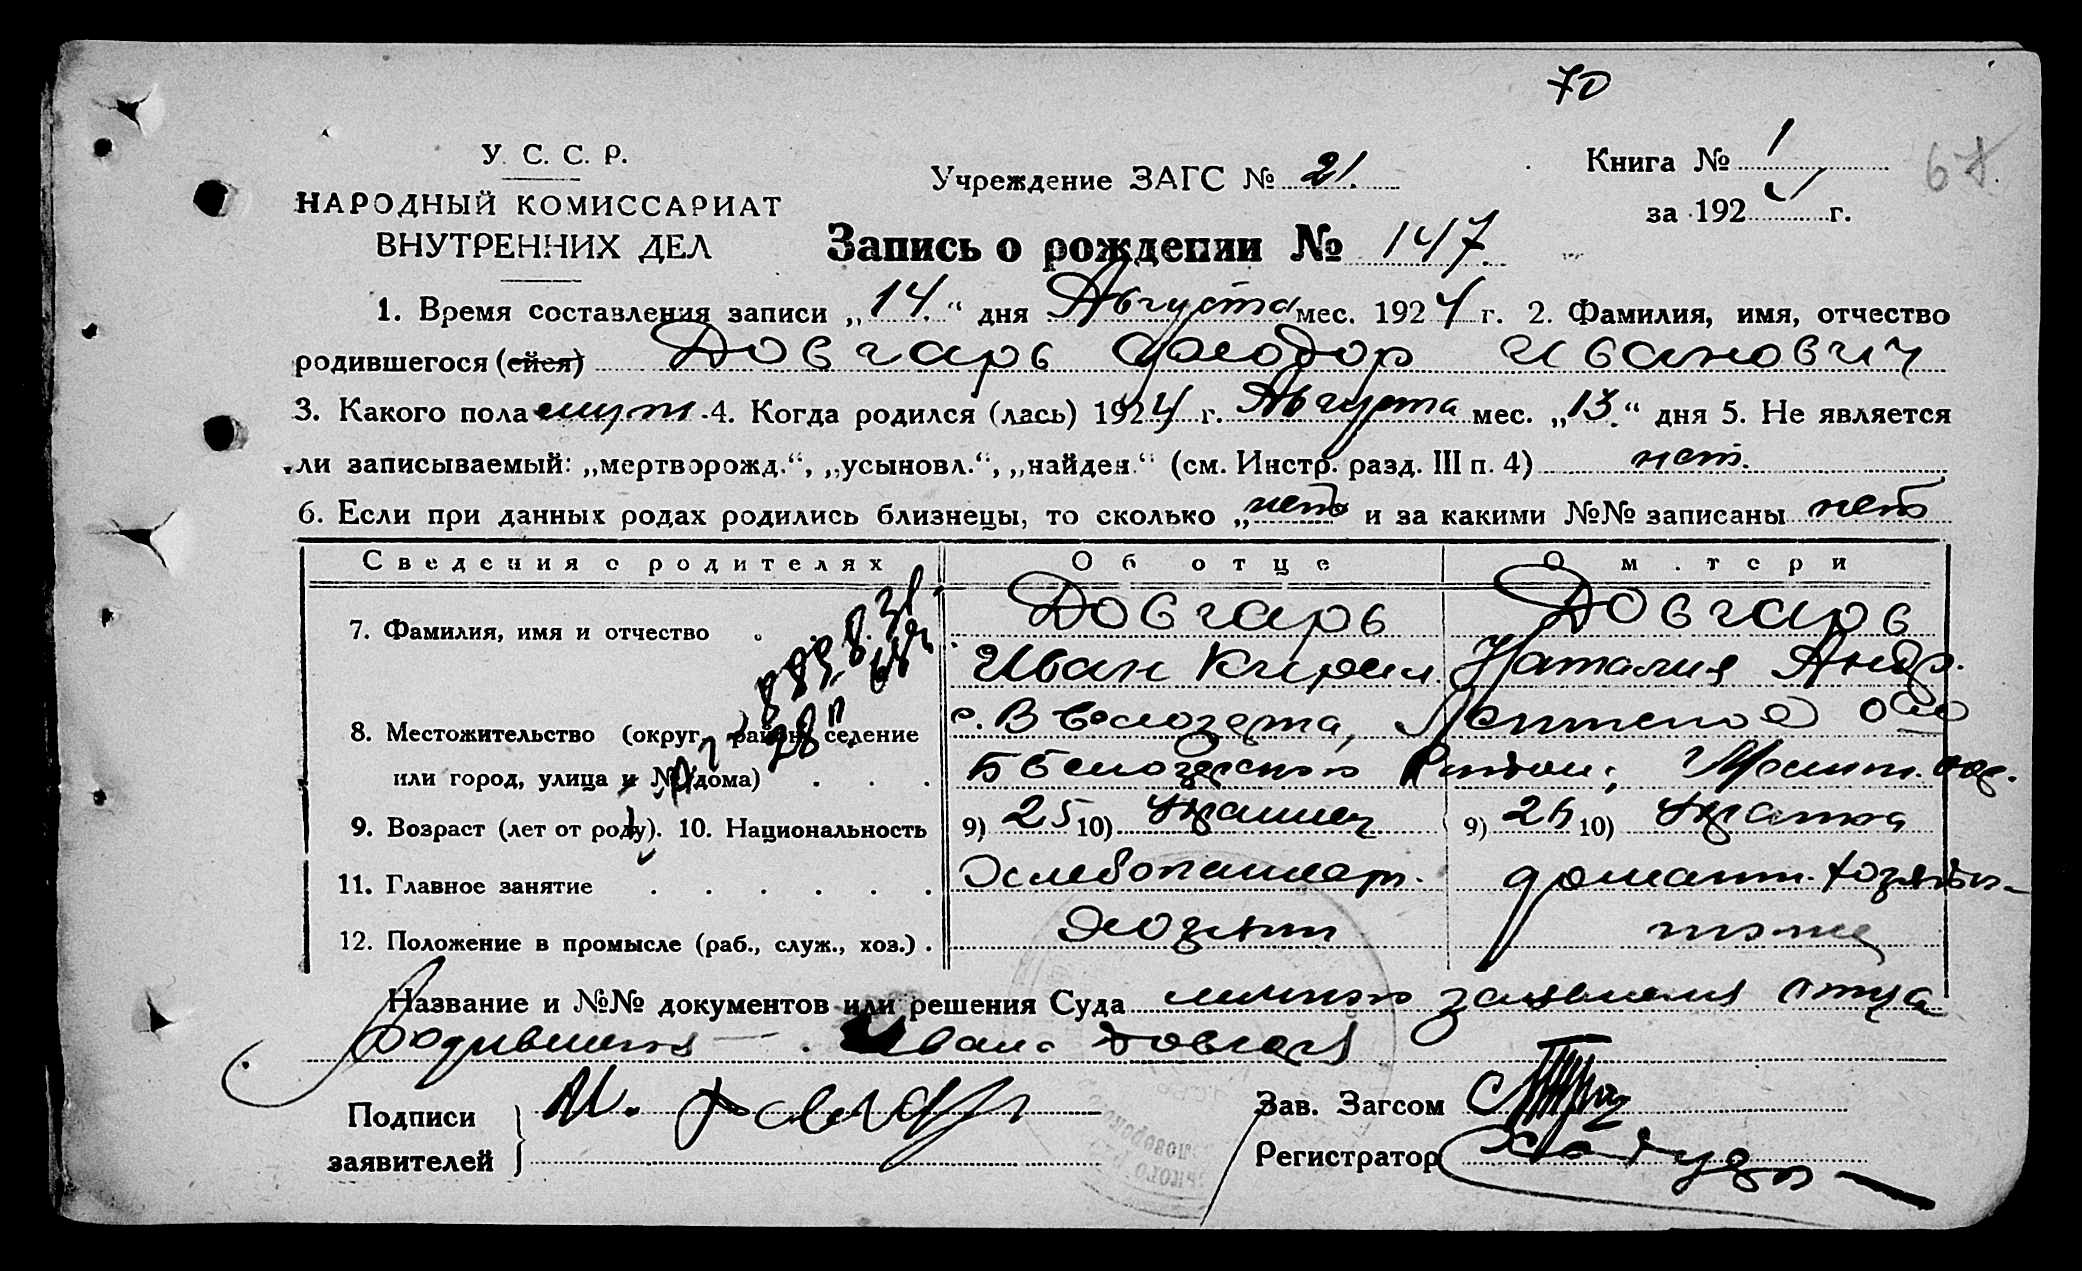 70
У. С. С. Р.
Учреждение ЗАГС № 21.
Книга № 1
НАРОДНЫЙ КОМИССАРИАТ
за 192 г.
ВНУТРЕННИХ ДЕЛ
Запись о рождении № 147
1. Время составления записи „14.“ дня Августа мес. 1924 г. 2. Фамилия, имя, отчество
родившегося (ейся) Довгарь Феодор Иванович
3. Какого пола муж. 4. Когда родился (лась) 1924 г. Августа мес. „13.“ дня 5. Не является
ли записываемый: „мертворожд.“, „усыновл.“, „найден.“ (см. Инстр. разд. III п. 4) нет.
6. Если при данных родах родились близнецы, то сколько „нет и за какими №№ записаны нет
Сведения о родителях Об отце О м.тери
7. Фамилия, имя и отчество Довгарь Довгарь
Иван Кирил. Наталия Андр.
8. Местожительство (округ, район, селение с. В Белозерка,
или город, улица и № дома) Белозерского Района,
9. Возраст (лет от роду). 10. Национальность 9) 25 10) Украинец 9) 26 10) Украинка
11. Главное занятие Хлебопашец. домашн. хозяйн.
12. Положение в промысле (раб., служ., хоз.) Хозяин тоже
Название и №№ документов или решения Суда личного заявления отца
родившегося Ивана Довгаря
Подписи И. Довгарь
Зав. Загсом
заявителей
Регистратор